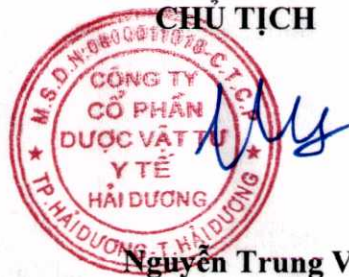 CHỦ TỊCH
M.S.D.N:0800011018-C.T.C.P
CÔNG TY
CỔ PHẦN
DƯỢC VẬT TƯ
Y TẾ
HẢI DƯƠNG
TP.HẢI DƯƠNG-T.HẢI DƯƠNG
Nguyễn Trung V